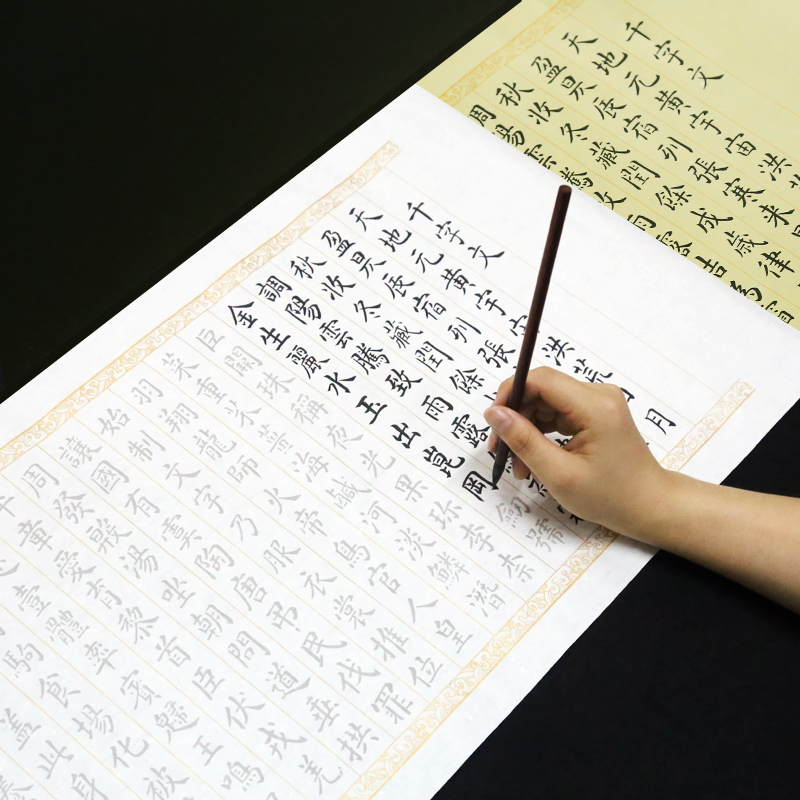 千字文
天地元黄宇宙洪
盈昃辰宿列張寒来
秋收冬藏閏餘成歲律
雲騰雨露為
千字文
天地元黄宇洪荒月
盈昃辰宿列張
秋收冬藏閏餘
調陽雲騰致雨露
金生麗水玉出崑岡劍號
巨闕珠稱夜光果珍李柰
菜重芥薑海鹹河淡鱗潛
羽翔龍師火帝鳥官人皇
始制文字乃服衣裳推位
讓國有虞陶唐弔民伐罪
周發殷湯坐朝問道垂拱
平章愛育黎首臣伏戎羌
壹體率賓歸王鳴
駒食場化被
蓋此身